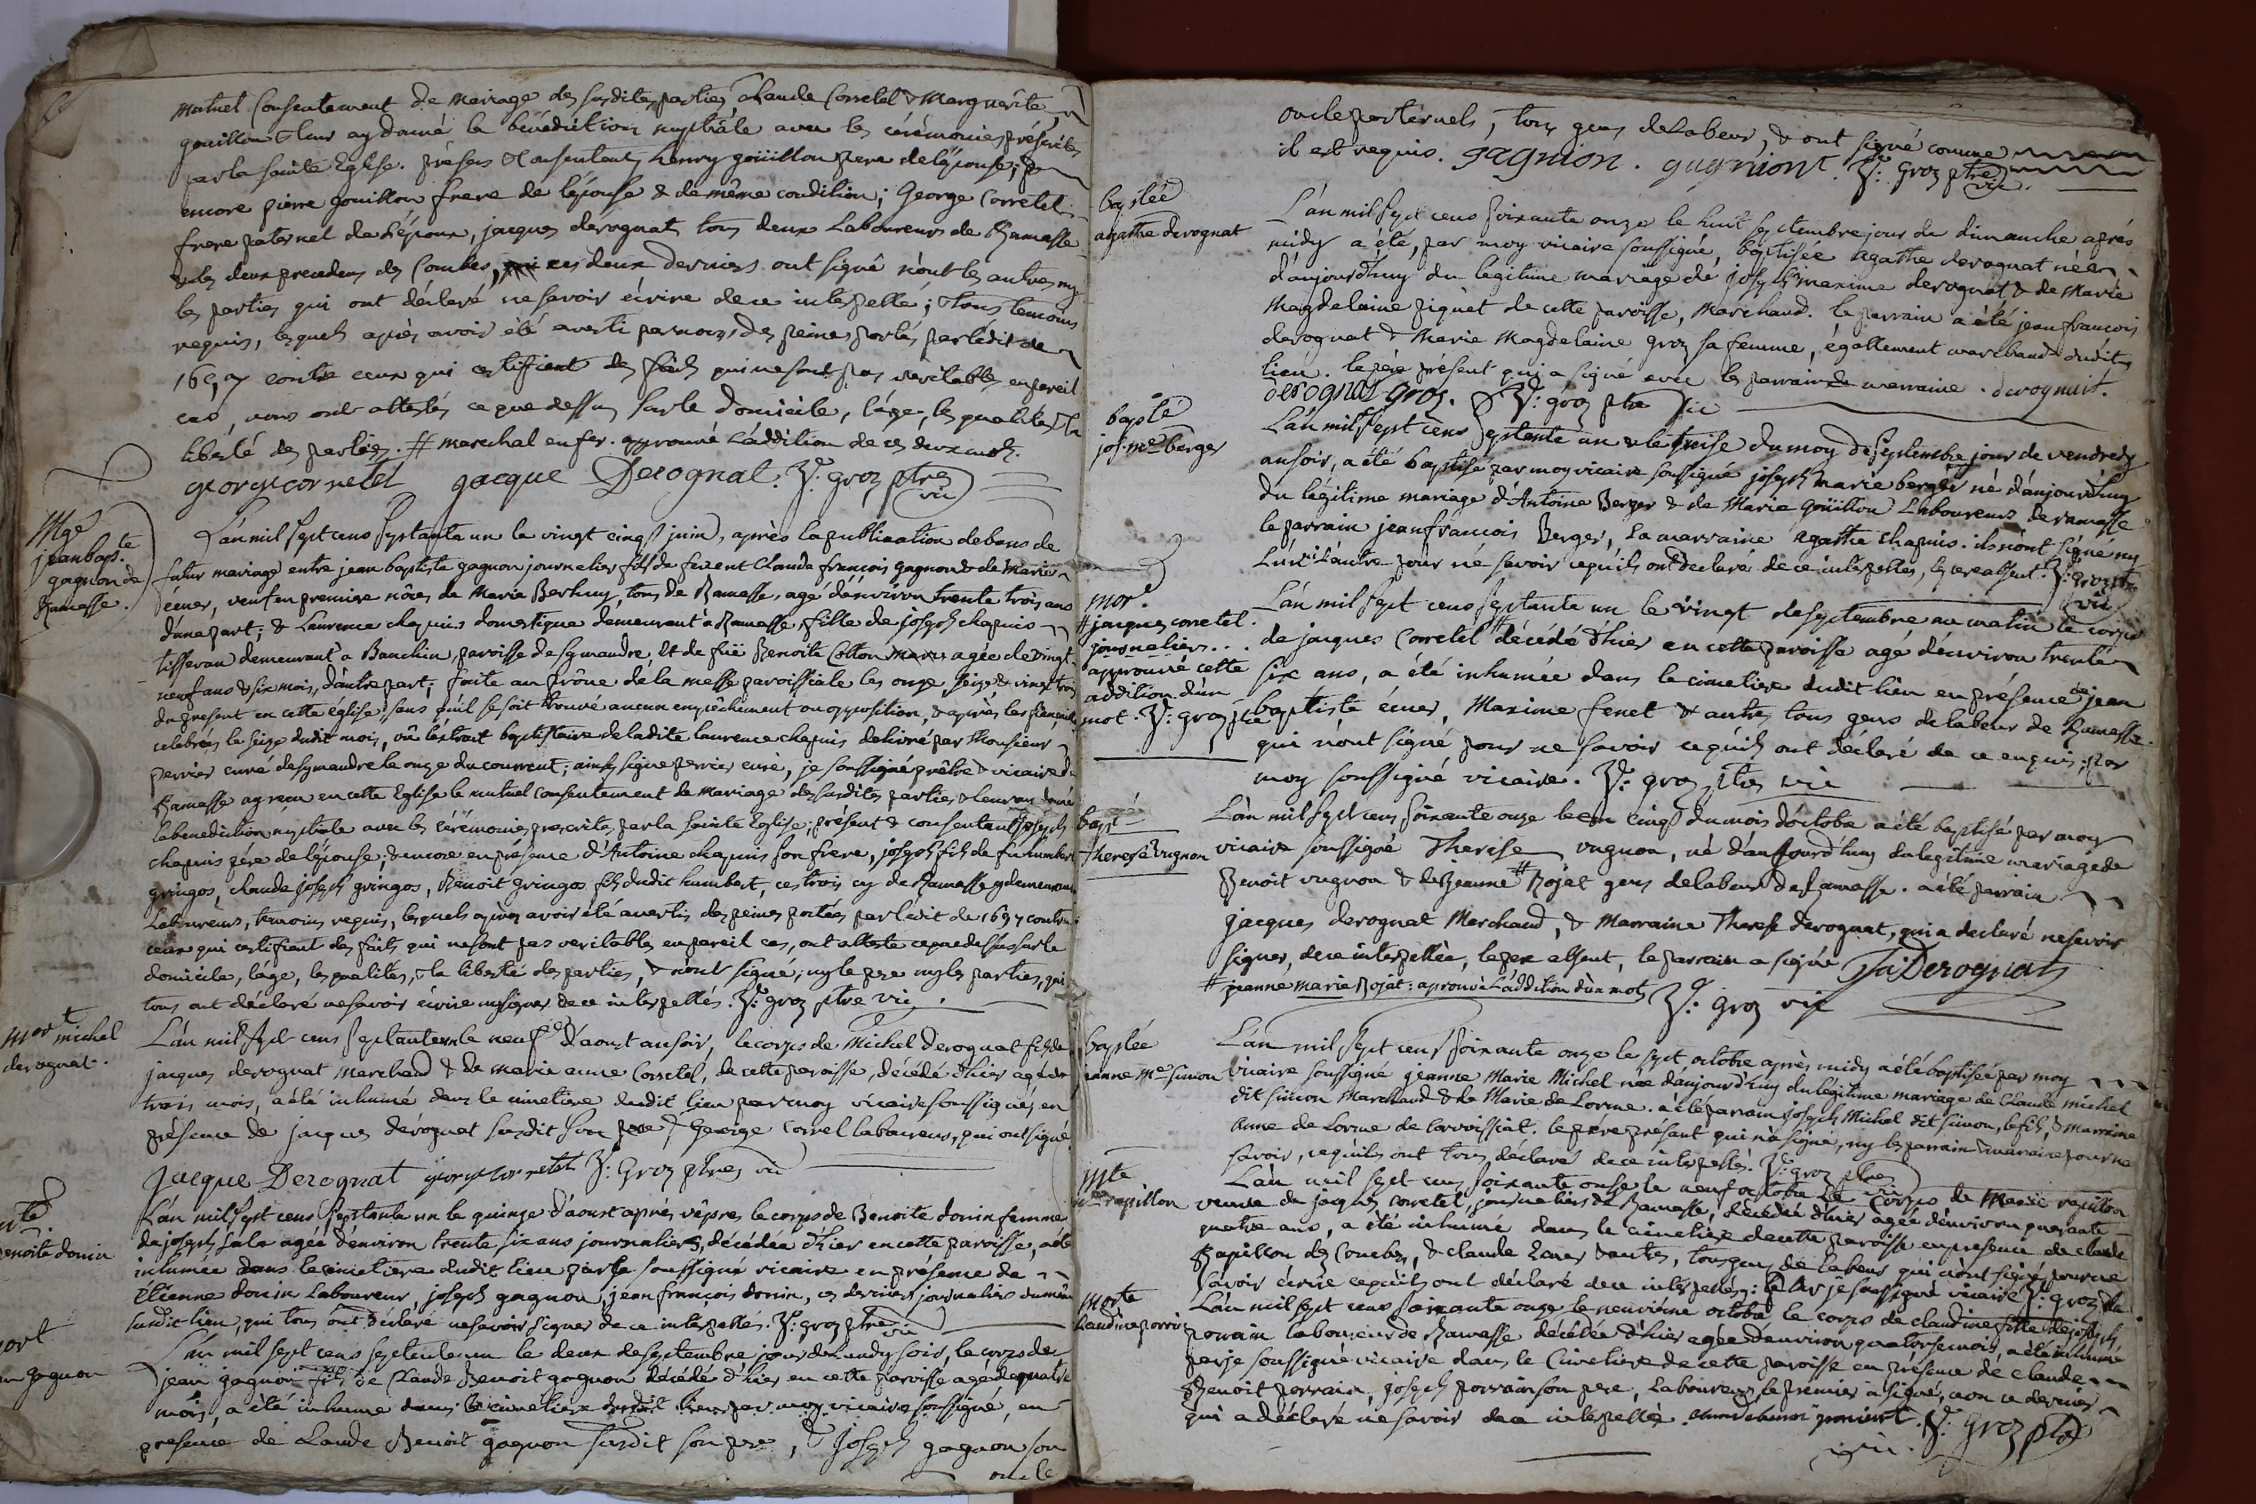 mutuel consentement de mariage des susdites parties Claude Corretel & Marguerite
gouillon & leur ay donné la bénédiction nuptiale avec les cérémonies préscrites
par la sainte Eglise. présens & Consentans henry goüillon pere de l'épouse; &
encore pierre gouillon frere de l'épouse & de même condition; George Corretel
frere paternel de l'époux, jacques dérognat tous deux Laboureurs de Ramasse
& les deux precedens des Combes, ces deux derniers ont signé non les autres ny
les parties qui ont déclaré ne savoir écrire de ce interpellé; & tous temoins
requis, lesquels après avoir été averti par nous des peines portés par l'édit de
1697 contre ceux qui certifient des faits qui ne sont pas véritables en pareil
cas, nous ont attestés ce que dessus sur le domicile, l'age, les qualités & la
liberté des parties. # marechal en fer. approuvé l'addition de ces deux mots.
george corretel jacque Derognat. J: groz ptre
vic
Mge
jean bapt.te
gagnon de
Ramasse.
L'an mil sept cens septante un le vingt cinq juin, après la publication de bans de
futur mariage entre jean baptiste gagnon journalier fils de feu Claude françois gagnon & de Marie
écuer, veuf en premiere nôces de Marie Berthuy, tous de Ramasse, agé d'environ trente trois ans
d'une part; & Laurence chapuis domestique demeurant à Ramasse fille de joseph chapuis
tisseran demeurant a Bauchin, paroisse de symandre, et de füe Benoite Cotton agée de vingt
neuf ans & six mois, d'autre part; faite au prône de la messe paroissiale les onze, seize & vingt trois
du present en cette église, sans qu'il se soit trouvé aucun empêchement ou opposition, & après les fiançailles
celebrées le seize dudit mois, vû l'extrait baptistaire de ladite laurence chapuis delivré par Monsieur
perrier curé de symandre le onze du courrent; ainsy signé perrier curé, je soussigné prêtre & vicaire de
Ramasse ay reçu en cette Eglise le mutuel consentement de mariage des susdites parties & leur ay donné
la benediction nuptiale avec les cérémonies prescrites par la sainte Eglise; présent & consentant joseph
chapuis pére de l'épouse; & encore en présence d'Antoine chapuis son frere, joseph fils de fu humbert
gringos, claude joseph gringos, Benoit gringos fils dudit humbert, ces trois cy de Ramasse y demeurans
Laboureurs, temoins requis, lesquels après avoir été avertis des peines portées par l'édit de 1697 contre
ceux qui certifient des faits qui ne sont pas veritables en pareil cas, ont attesté ce que dessus sur le
domicile, l'age, les qualités, & la liberté des parties, & n'ont signé; ny le pere ny les parties, qui
tous ont déclaré ne savoir écrire ny signer de ce interpellés. J: groz ptre vic.
Mort michel
derognat.
L'an mil sept cens septante un le neuf d'aoust au soir, le corps de Michel derognat fils de
jacques derognat marchand & de marie anne Corretel, de cette paroisse, décédé d'hier agé de
trois mois, a été inhumé dans le cimetiere dudit lieu par moy vicaire soussigné, en
présence de jacques dérognat susdit son pere & George Correl laboureurs, qui ont signé
Jacque Derognat george corretel J: Groz ptre vic
Benoite donin
L'an mil sept cens septante un le quinze d'aoust après vêpres le corps de Benoite donin femme
de joseph sala agée d'environ trente six ans journaliers, décédée d'hier en cette paroisse, a été
inhumée dans le cimetiere dudit lieu par le soussigné vicaire en présence de
Étienne donin Laboureur, joseph gagnon, jean françois donin, ces derniers journaliers du même
susdit lieu, qui tous ont déclaré ne savoir signer de ce interpellés. J: groz ptre
vic
mort
gagnon
L'an mil sept cens septente un le deux de septembre jour de Lundy soir, le corps de
jean gagnon fils de Claude Benoit gagnon décédé d'hier en cette paroisse agé de quatre
mois, a été inhumé dans le cimetiere dudit lieu par moy vicaire soussigné, en
presence de Claude Benoit gagnon susdit son pere, & joseph gagnon son
oncle
oncle paternels, tous gens de Labeur, & ont signé comme
il est requis. gagnion. gagniont. J: groz ptre
vic.
baptée
agathe derognat
L'an mil sept cens soixante onze le huit septembre jour de dimanche après
midy a été, par moy vicaire soussigné, baptisée agathe derognat née
d'aujourd'huy du legitime mariage de joseph maxime derognat & de Marie
Magdelaine piquet de cette paroisse, marchand. le parrain a été jean françois
derognat & Marie Magdelaine groz sa femme, égallement marchand dudit
lieu. le pére présent qui a signé avec les parrain & marraine. derognait.
derognat groz. J: groz ptre vic
bapté
jos. m.e berger
L'an mil sept cens septente un & le treise du moy de septembre jour de vendredy
au soir, a été baptisé par moy vicaire soussigné joseph marie berger né d'aujourd'huy
du légitime mariage d'Antoine Berger & de Marie goüillon Laboureurs de ramasse
le parrain jean françois Berger, La marraine agathe chapuis. ils n'ont signé ny
l'un ny l'autre pour ne savoir ce qu'ils ont déclaré de ce interpellés, le pere absent. J: groz ptre
vic
mor.
# jacques corretel.
journalier...
approuvé cette
addition d'un
mot. J: groz ptre
L'an mil sept cens septante un le vingt de septembre au matin le corps
de jacques Corretel # décédé d'hier en cette paroisse agé d'environ trente
six ans, a été inhumée dans le cimetiere dudit lieu en présence de jean
baptiste écuer, Maxime fenet & autres tous gens de labeur de Ramasse
qui n'ont signé pour ne savoir ce qu'ils ont déclaré de ce enquis; par
moy soussigné vicaire. J: groz ptre vic
bapt
Therese vugnon
L'an mil sept cens soixante onze le cinq du mois d'octobre a été baptisé par moy
vicaire soussigné Therese vugnon, né d'aujourd'huy du legitime mariage de
Benoit vugnon & de Jeanne # Rojat gens de labeur de Ramasse. a été parrain
jacques derognat Marchand, & Marraine Therese derognat, qui a declaré ne savoir
signer, de ce interpellée, le pere absent, le parrain a signé Ja: Derognat
# jeanne marie Rojat: aprouvé l'addition d'un mot J: groz vic
baptée
jeanne m.e simon
L'an mil sept cens soixante onze le sept octobre après midy a été baptisée par moy
vicaire soussigné jeanne Marie Michel née d'aujourd'huy du légitime mariage de Claude michel
dit simon Marchand & de Marie de Lorme. a été parrain joseph Michel dit simon, le fils, & marraine
anne de Lorme de corvoissiat. le pere présent qui n'a signé, ny les parrain & marraine pour ne
savoir, ce qu'ils ont tous déclarés de ce interpellés. J: groz ptre
vic
Mte
m.e rapillon
L'an mil sept cens soixante onze le neuf octobre le corps de Marie rapillon
veuve de jacques corretel, journaliers de Ramasse, décédée d'hier agée d'environ quarante
quatre ans, a été inhumée dans le cimetiere de cette paroisse en presence de claude
Rapillon des Combes, & claude Ecuer & autres, tous gens de Labeur qui n'ont signé pour ne
savoir écrire ce qu'ils ont déclaré de ce interpellés; par je soussigné vicaire J: groz ptre
Morte
Claudine porrin
L'an mil sept cens soixante onze le neuviéme octobre le corps de claudine fille de joseph
porrain laboureur de Ramasse décédée d'hier agée d'environ quatorse mois, a été inhumé
par je soussigné vicaire dans le Cimetiere de cette paroisse en présence de claude
Benoit porrain, joseph porrain son pere, Laboureurs, le premier a signé, non ce dernier
qui a déclaré ne savoir de ce interpellés. J: groz ptre
vic.